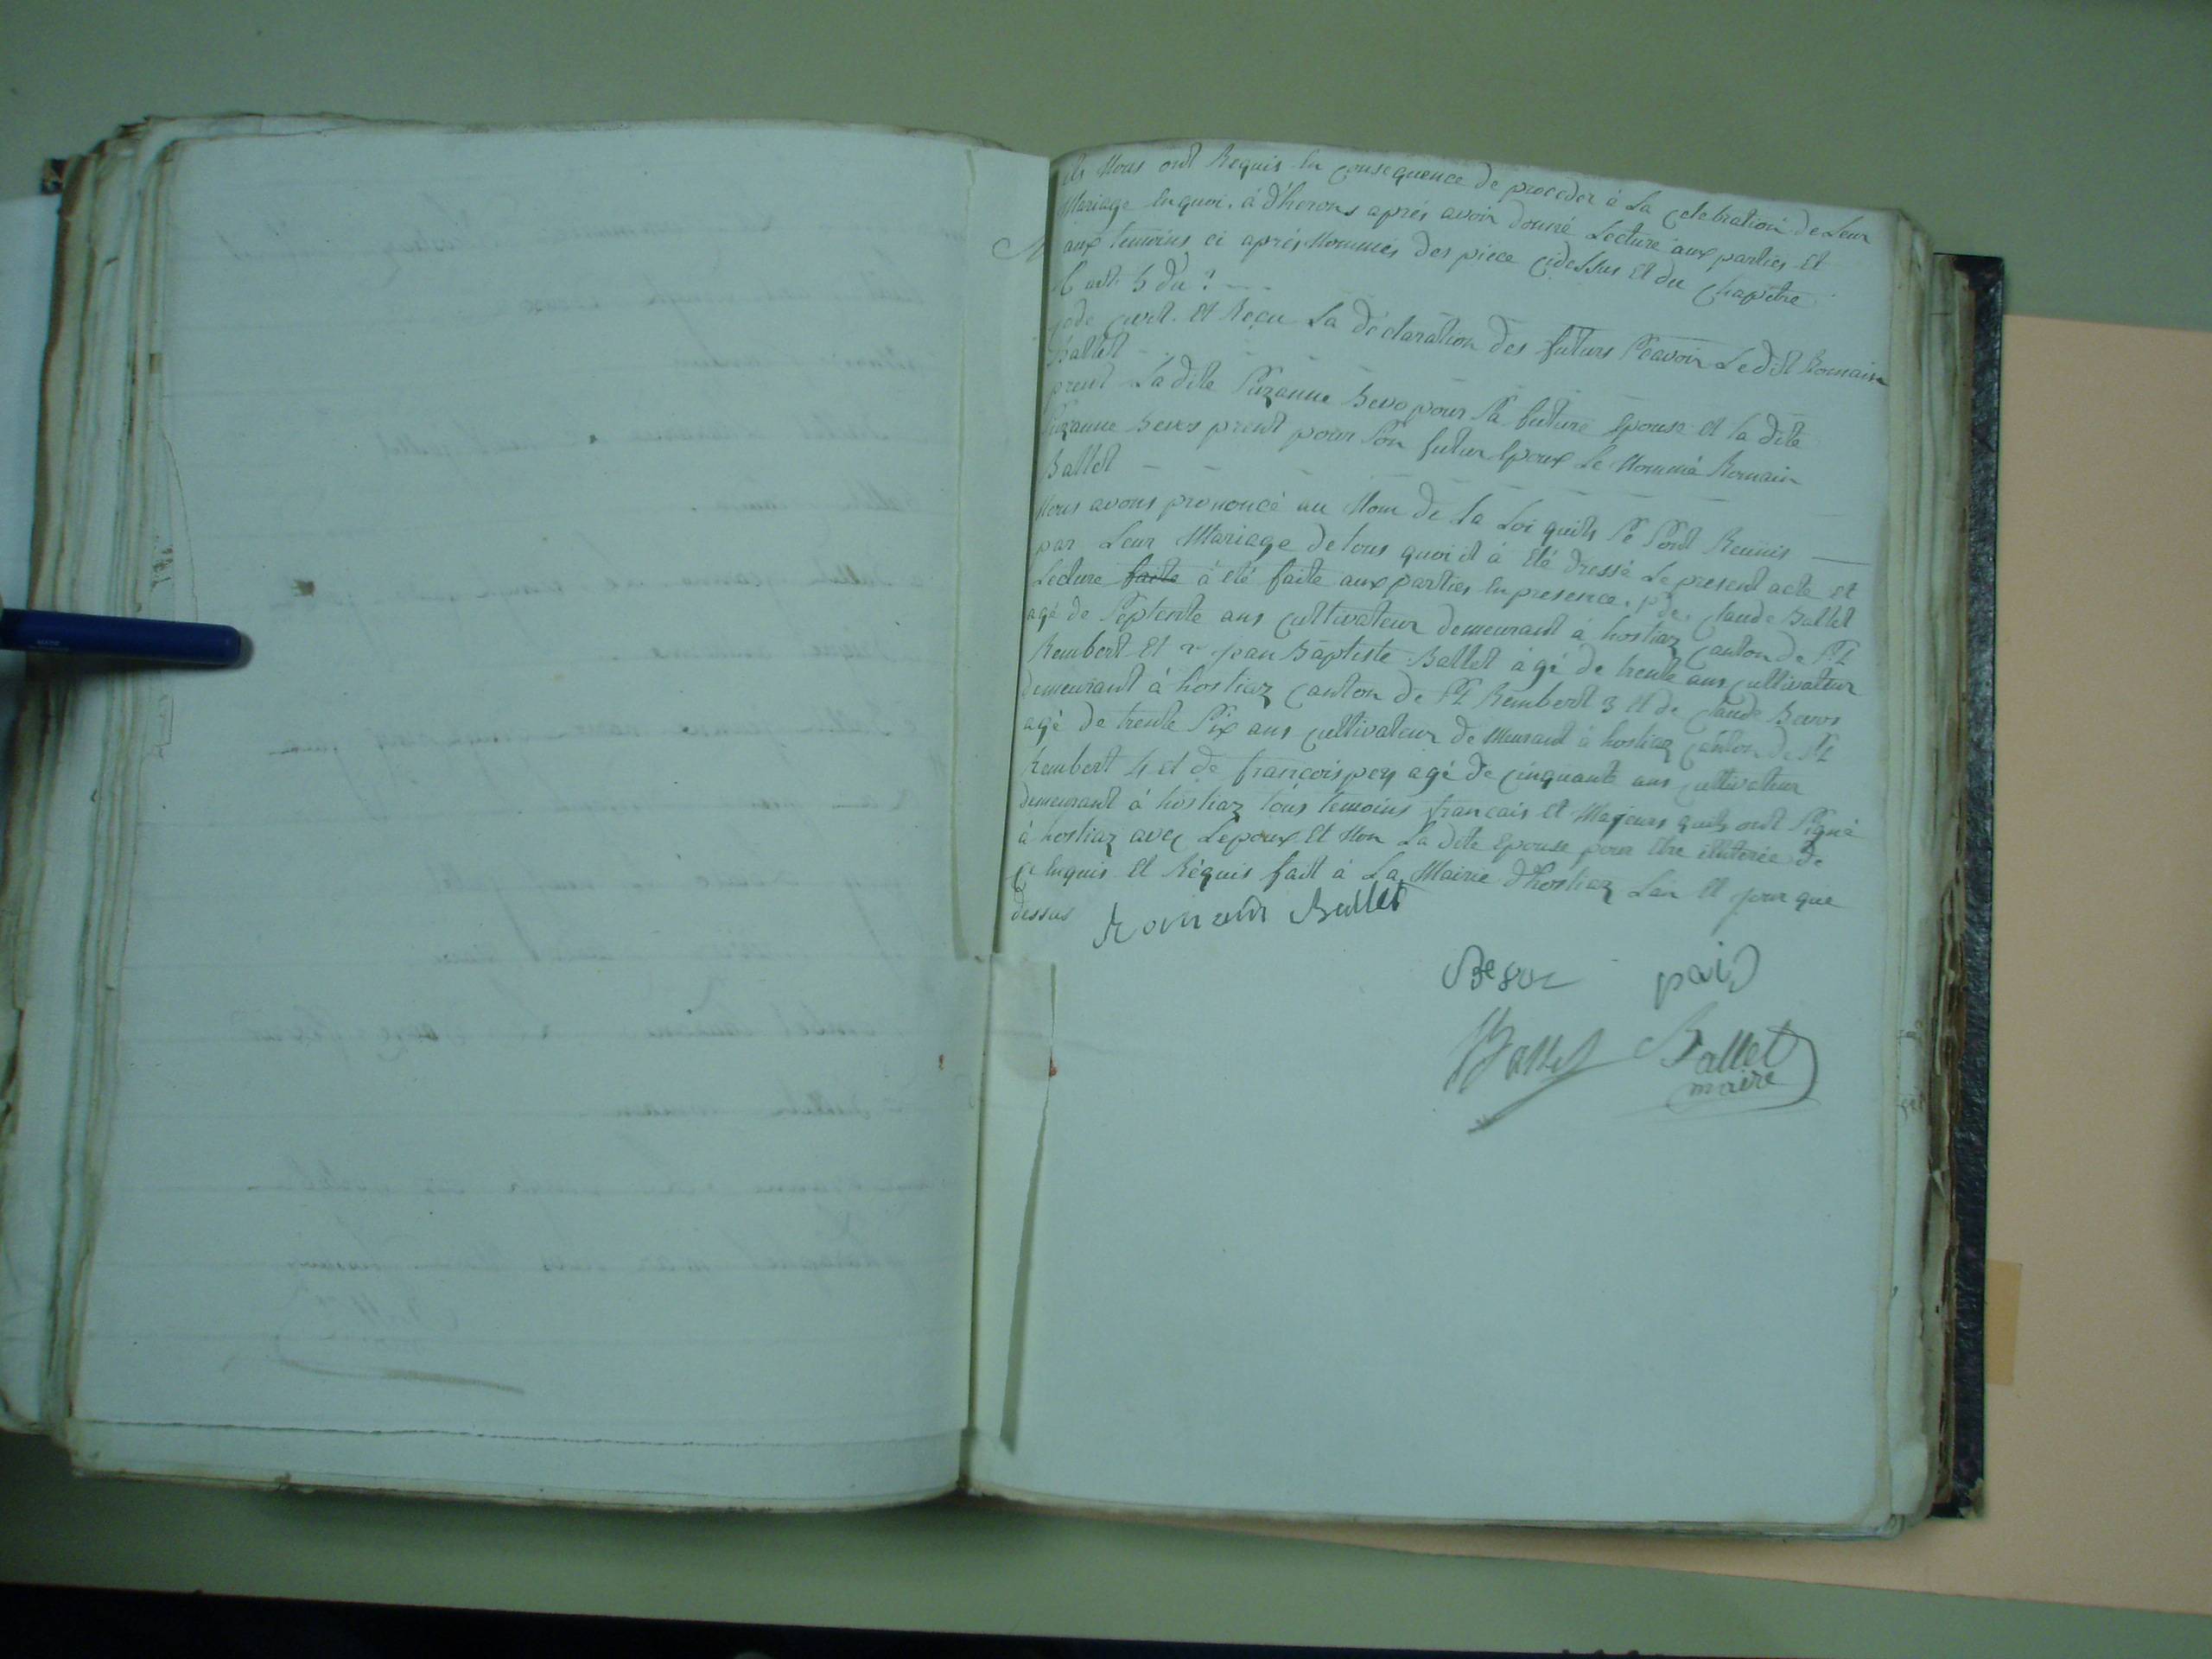 ils Nous ont Requis En consequence de proceder à La celebration de Leur
Mariage Enquoi, á d'herons aprés avoir donné Lecture aux parties Et
aux temoins ci aprés Nommés des piece cidessus Et du Chapitre
6 art. 5 du
code civil. Et Recu La déclaration des futurs Scavoir Ledit Romain
Ballet
prent La dite Suzanne Bevo pour Sa future Epouse et la dite
Suzanne Bevos prent pour Son futur Epoux Le Nommé Romain
Ballet
Nous avons prononcé au Nom de La Loi quils Se Sont Reunis
par Leur Mariage detous quoi il à Eté dressé Le present acte et
Lecture faite à eté faite aux parties En presence. 1 de. Claude Ballet
agé de Septente ans cultivateur demeurant à hostiaz Canton de St
Rembert Et 2 jean Baptiste Ballet àgé de trente ans cultivateur
demeurant á hostiaz Canton de St Rembert 3 Et de Claude Bevos
agé de trente Six ans cultivateur de Meurant à hostiaz Canton de St
Rembert 4 et de francois pey agé de cinquante ans cultivateur
demeurant á hostiaz tous temoins francais et Majeurs quils ont Signé
à hostiaz avec Lepoux Et Non La dite Epouse pour Etre illiterée de
ce Enquis Et Réquis fait à La Mairie d'hostiaz Lan Et jour que
dessus
Romain Ballet
Bevoz paiy
Ballet Ballet
maire